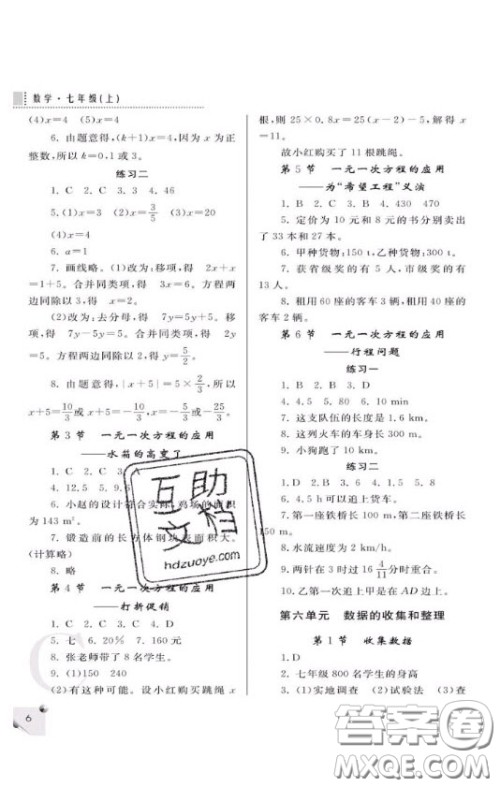 数学·七年级(上)
(4)x=4　(5)x=4
6. 由题意得,(k+1)x=4,因为 x 为正
整数,所以 k=0,1或3.
练习二
1. C　2. C　3. 4　4. 46
5.(1)x=4　(2)x=3/5　(3)x=4
(4)x=4
6. a=1
7. 画线略。(1)改为:移项,得　2x+x
=1+2. 合并同类项,得　3x=3. 方程两
边同除以3,得　x=1.
(2)改为:去分母,得　7y=5y+5. 移
项,得　7y-5y=5. 合并同类项,得　2y
=5. 方程两边同除以2,得 y=5/2.
8. 由题意,得|x+5|=5×2/3,所以
x+5=10/3或x+5=-10/3,x=-5/3或-25/3.
第3节　一元一次方程的应用
——水箱的高变了
1. C　2. C　3. A
4. 12.5　5. 9.6
6. 小赵的设计符合实际,鸡场的面积
为143 m².
7. 锻造前的长方体钢块表面积大。
(计算略)
8. 略
第4节　一元一次方程的应用
——打折促销
1. C　2. C　3. C　4. D
5. 七　6. 20%　7. 160元
8. 张老师带了8名学生。
9.(1)150　240
(2)有这种可能。设小红购买跳绳 x
6
根,则25×0.8x=25(x-2)-5,解得 x=
11.
故小红购买了11根跳绳。
第5节　一元一次方程的应用
——为“希望工程”义演
1. B　2. C　3. B　4. 430　470
5. 定价为10元和8元的书分别卖出
了33本和27本。
6. 甲种货物:150 t,乙种货物:300 t.
7. 获省级奖的有5人,市级奖的有
13人。
8. 租用60座的客车3辆,租用40座
的客车2辆。
第6节　一元一次方程的应用
——行程问题
练习一
1. B　2. B　3. D
4. 4.5　5. 80　6. 10
7. 这支队伍的长度是1.6 km.
8. 这列火车的车身长300 m.
9. 小狗跑了10 km.
练习二
1. C　2. C　3. D　4. 4　5. 4
6. 4.5 h可以追上货车。
7. 第一座铁桥长100 m,第二座铁桥长
150 m.
8. 水流速度为2 km/h.
9. 两针在3时过16 4/11分时重合。
10. 乙第一次追上甲是在AD边上。
第六单元　数据的收集和整理
第1节　收集数据
1. D
2. 七年级800名学生的身高
3.(1)实地调查　(2)试验法　(3)查
互助文档
hdzuoye.com
答案圈
MXQE.COM